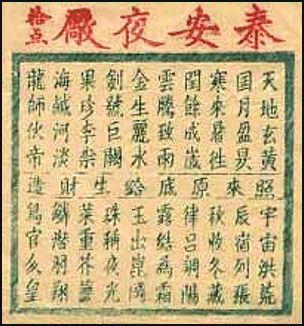 泰安夜廠
拾点
天地玄黃
日月盈昃
寒來暑往
閏餘成歲
雲騰致雨
金生麗水
劍號巨闕
果珍李柰
海鹹河淡
龍師火帝
照來原底給生財造
宇宙洪荒
辰宿列張
秋收冬藏
律呂調陽
露結為霜
玉出崑岡
珠稱夜光
菜重芥薑
鱗潛羽翔
鳥官人皇